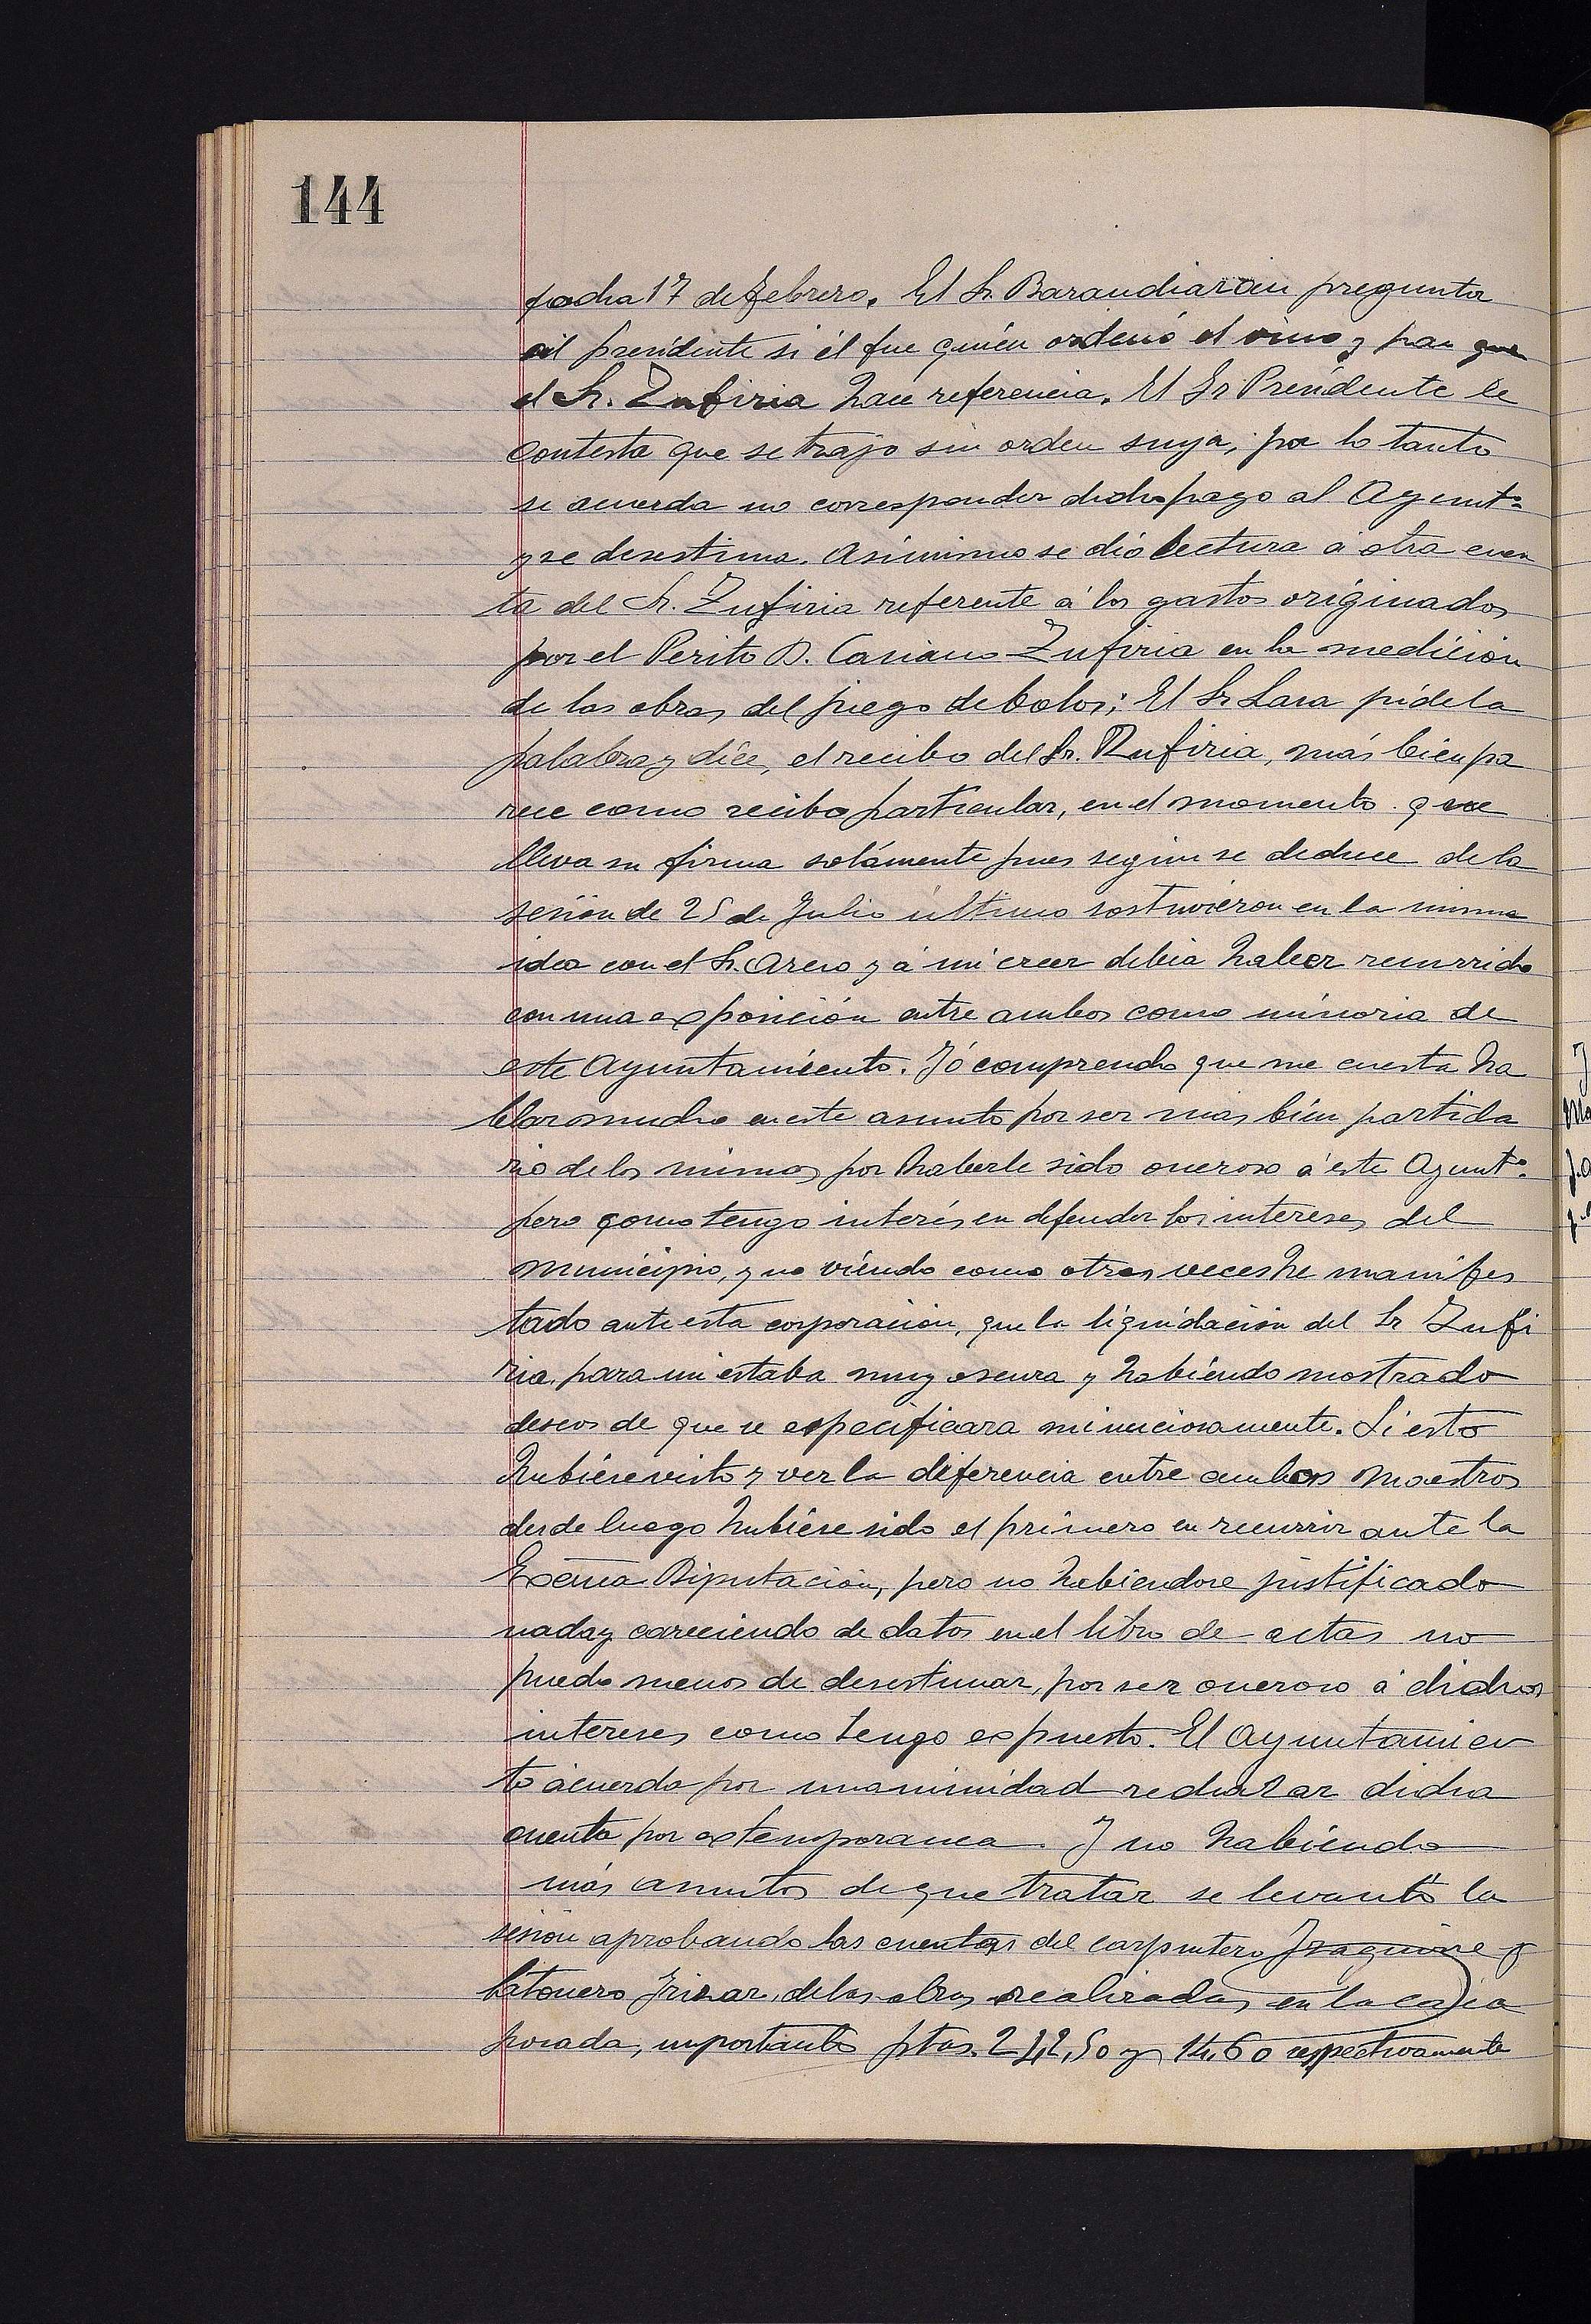 144
fecha 17 de febrero. El Sr. Barandiarán pregunta
al presidente si él fue quién ordenó el vino y pan que
el Sr. Zufiria hace referencia. El Sr Presidente le
contesta que se trajo sin orden suya, por lo tanto
se acuerda no corresponder dicho pago al Ayuntº
y se desestima. Asimismo se dió lectura á otra cuen
ta del Sr. Zufiria referente á los gastos originados
por el Perito D. Casiano Zufiria en la medición
de las obras del juego de bolos; El Sr Lasa pide la
palabra y dice, el recibo del Sr. Zufiria, más bien pa
rece como recibo particular, en el momento que
lleva su firma solámente pues según se deduce de la
sesión de 25 de Julio último sostuvieron en la misma
idea con el Sr. Areso y á mi creer debia haber recurrido
con una exposición entre ambos como minoria de
este Ayuntamiento. Yó comprendo que me cuesta ha
blar mucho en este asunto por ser mas bien partida
rio de los mismos por haberle sido oneroso á este Ayuntº.
pero como tengo interés en defender los intereses del
municipio, y no viendo como otras veces he manifes
tado ante esta corporación, que la liquidación del Sr Zufi
ria, para mi estaba muy oscura y habiendo mostrado
deseos de que se especificara minuciosamente. Si esto
hubiese visto y ver la diferencia entre ambos maestros
desde luego hubiese sido el primero en recurrir ante la
Excma Diputación, pero no habiendose justificado
nada y careciendo de datos en el libro de actas no
puedo menos de desestimar, por ser oneroso á dichos
intereses como tengo expuesto. El Ayuntamien
to acuerda por unanimidad rechazar dicha
cuenta por extemporanea. Y no habiendo
más asuntos de que tratar se levantó la
sesión aprobando las cuentas del carpintero Izaguirre y
latonero Irizar, de las obras realizadas en la casa
posada, importante ptas. 242,50 y 14,60 respectivamente